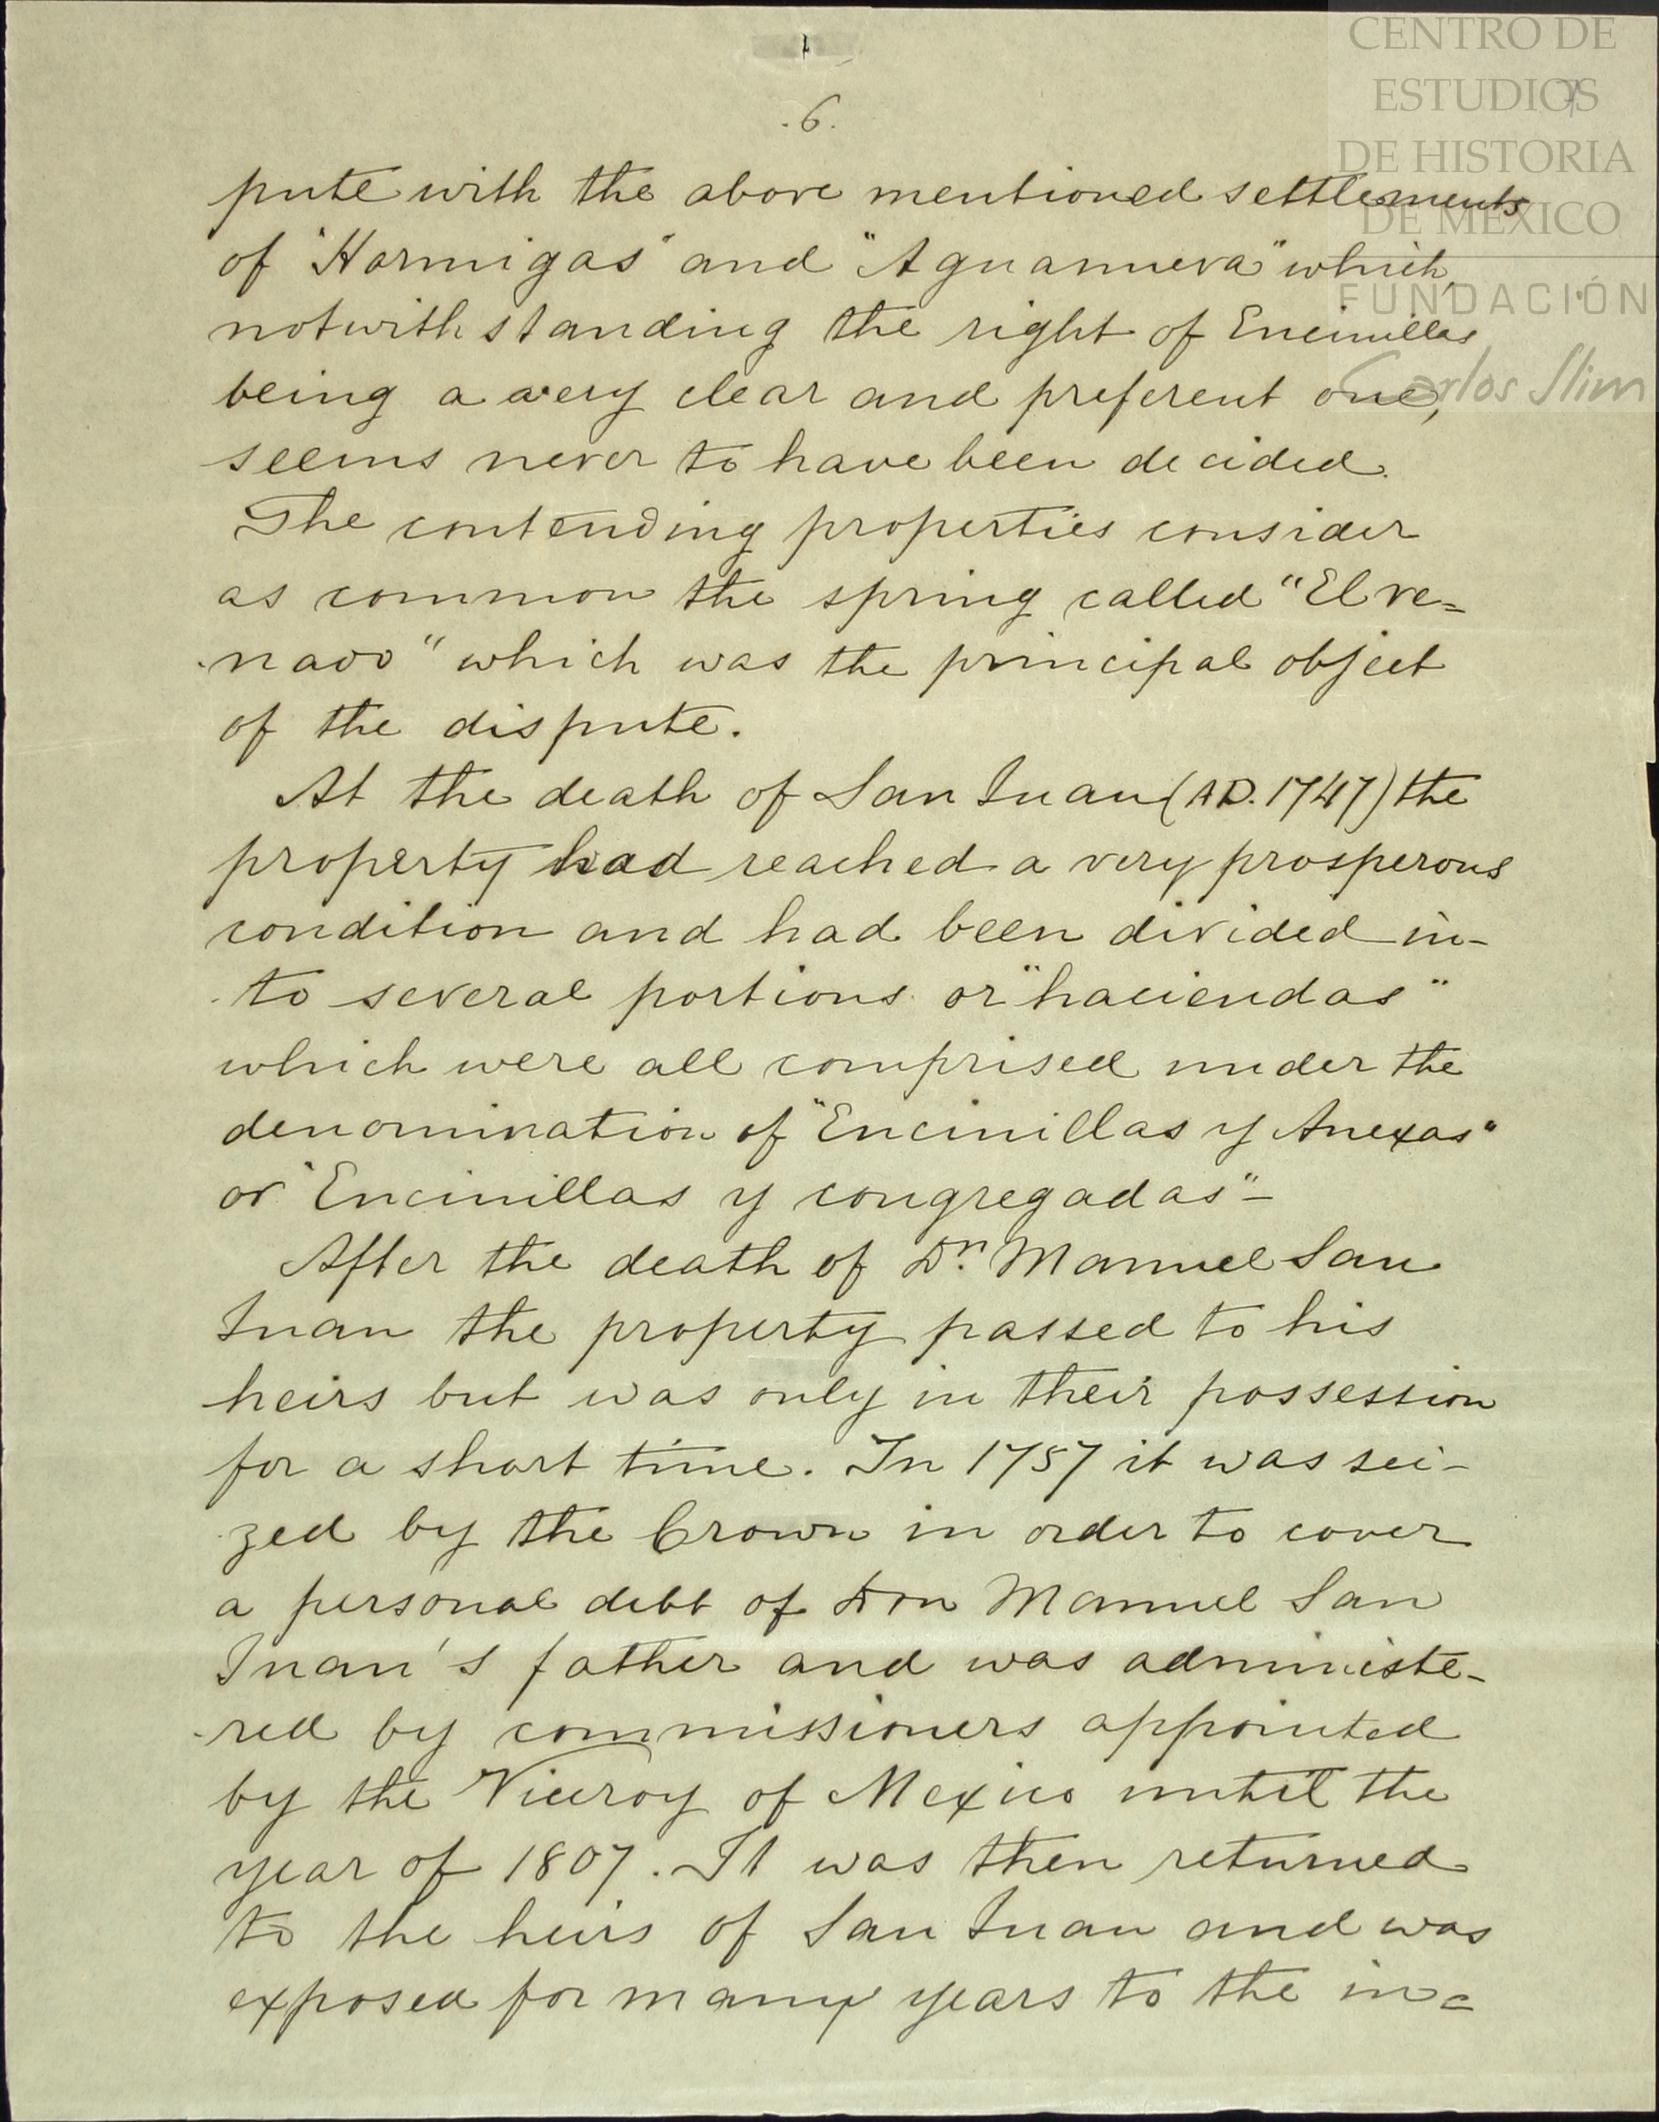 CENTRO DE
ESTUDIOS
DE HISTORIA
DE MÉXICO
FUNDACIÓN
Carlos Slim
.6.
pute with the above mentioned settlements
of "Hormigas" and "Aguanueva" which,
notwithstanding the right of Encinillas
being a very clear and preferent one,
seems never to have been decided.
The contending properties consider
as common the spring called "El ve=
nado" which was the principal object
of the dispute.
At the death of San Juan (A.D. 1747) the
property had reached a very prosperous
condition and had been divided in-
to several portions or "haciendas"
which were all comprised under the
denomination of "Encinillas y Anexas"
or "Encinillas y congregadas"-
After the death of Dn. Manuel San
Juan the property passed to his
heirs but was only in their possession
for a short time. In 1757 it was sei-
zed by the Crown in order to cover
a personal debt of Don Manuel San
Juan's father and was administe-
red by commissioners appointed
by the Viceroy of Mexico until the
year of 1807. It was then returned
to the heirs of San Juan and was
exposed for many years to the in=